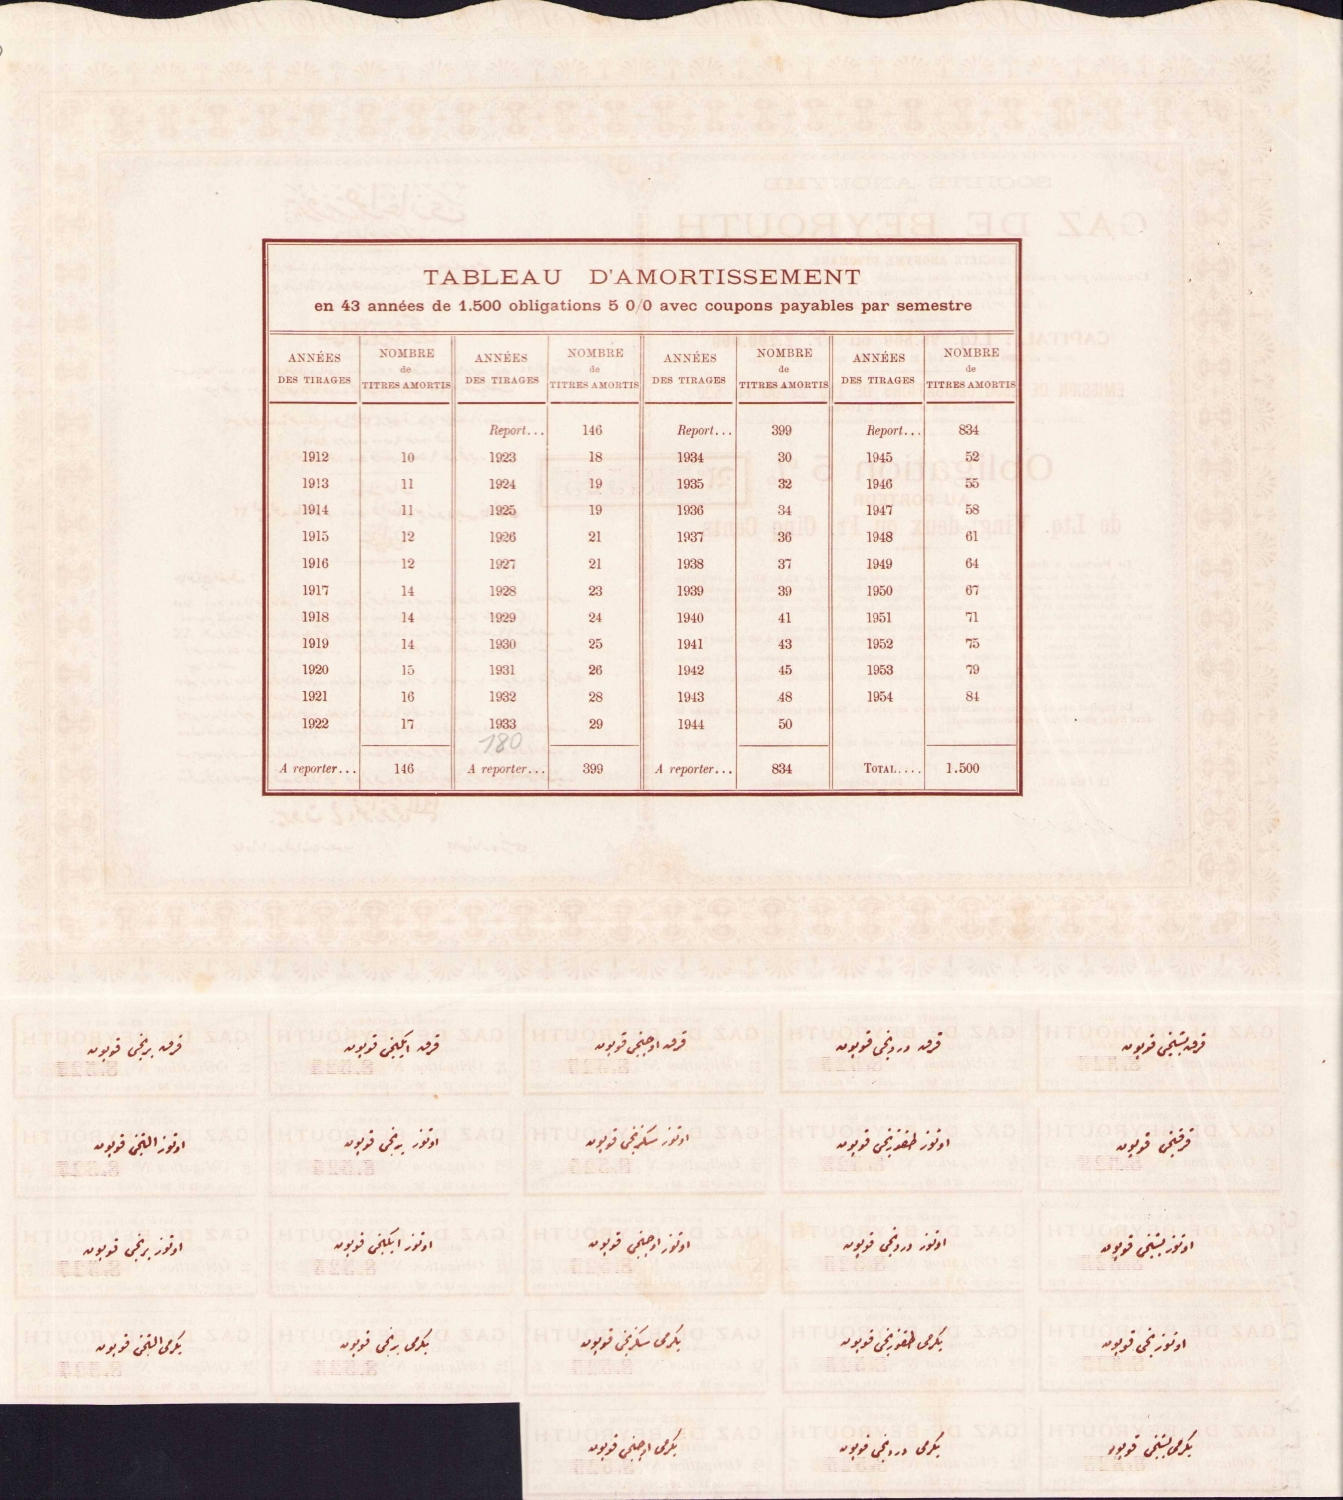 TABLEAU D'AMORTISSEMENT
en 43 années de 1.500 obligations 5 0/0 avec coupons payables par semestre
ANNÉES DES TIRAGES NOMBRE de TITRES AMORTIS ANNÉES DES TIRAGES NOMBRE de TITRES AMORTIS ANNÉES DES TIRAGES NOMBRE de TITRES AMORTIS ANNÉES DES TIRAGES NOMBRE de TITRES AMORTIS
Report... 146 Report... 399 Report... 834
1912 10 1923 18 1934 30 1945 52
1913 11 1924 19 1935 32 1946 55
1914 11 1925 19 1936 34 1947 58
1915 12 1926 21 1937 36 1948 61
1916 12 1927 21 1938 37 1949 64
1917 14 1928 23 1939 39 1950 67
1918 14 1929 24 1940 41 1951 71
1919 14 1930 25 1941 43 1952 75
1920 15 1931 26 1942 45 1953 79
1921 16 1932 28 1943 48 1954 84
1922 17 1933 29 1944 50
180
A reporter... 146 A reporter... 399 A reporter... 834 TOTAL.... 1.500
قرق بشنجی قوپون
قرق دردنجی قوپون
قرق اوچنجی قوپون
قرق ایکنجی قوپون
قرق برنجی قوپون
قرقنجی قوپون
اوتوز طقوزنجی قوپون
اوتوز سکزنجی قوپون
اوتوز یدنجی قوپون
اوتوز التنجی قوپون
اوتوز بشنجی قوپون
اوتوز دردنجی قوپون
اوتوز اوچنجی قوپون
اوتوز ایکنجی قوپون
اوتوز برنجی قوپون
اوتوزنجی قوپون
یکرمی طقوزنجی قوپون
یکرمی سکزنجی قوپون
یکرمی یدنجی قوپون
یکرمی التنجی قوپون
یکرمی بشنجی قوپون
یکرمی دردنجی قوپون
یکرمی اوچنجی قوپون